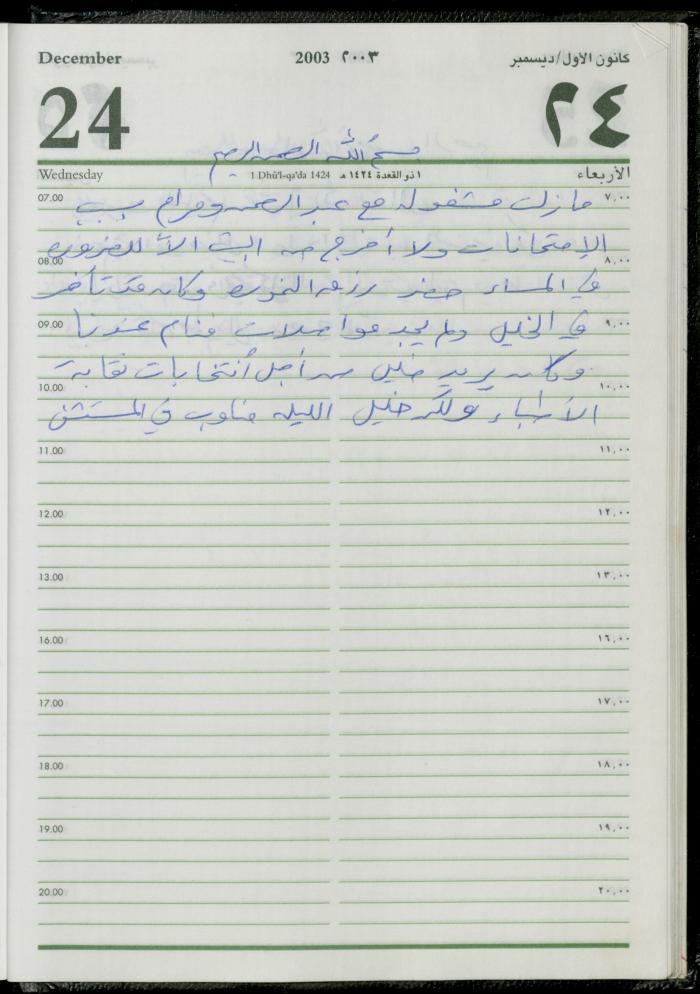 December 2003 ٢٠٠٣ كانون الاول/ديسمبر
24 ٢٤
بسم الله الرحمن الرحيم
Wednesday 1 Dhū'l-qa'da 1424 ١ ذو القعدة ١٤٢٤ هـ الأربعاء
07.00 ٧,٠٠
مازلت مشغوله مع عبد الرحمن ومرام بسبب
الإمتحانات ولا أخرج من البيت الا للضروره
08.00 ٨,٠٠
في المساء حضر رزق وكان قد تأخر
09.00 ٩,٠٠
في الخليل ولم يجد مواصلات فنام عندنا
وكان يريد خليل من أجل أنتخابات نقابة
10.00 ١٠,٠٠
الأطباء ولكن خليل الليله مناوب في المستشفى
11.00 ١١,٠٠
12.00 ١٢,٠٠
13.00 ١٣,٠٠
16.00 ١٦,٠٠
17.00 ١٧,٠٠
18.00 ١٨,٠٠
19.00 ١٩,٠٠
20.00 ٢٠,٠٠